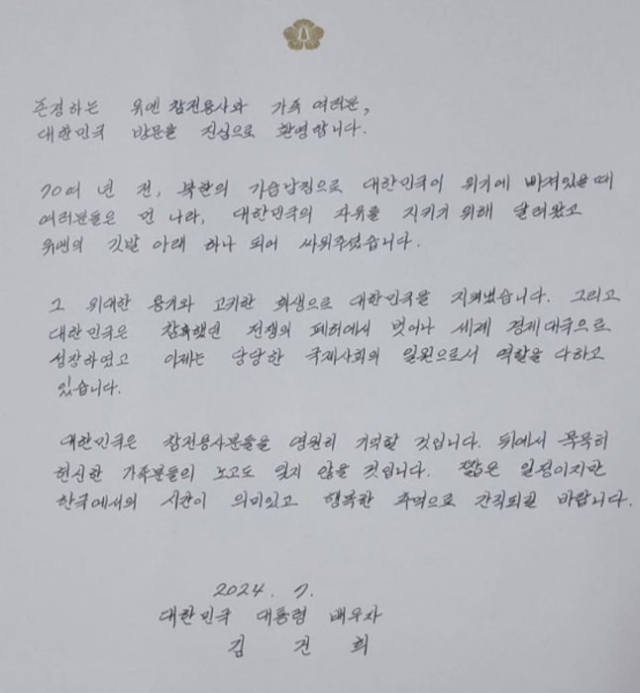 존경하는 유엔 참전용사와 가족 여러분,
대한민국 방문을 진심으로 환영합니다.
70여 년 전, 북한의 기습남침으로 대한민국이 위기에 빠져있을 때
여러분들은 먼 나라, 대한민국의 자유를 지키기 위해 달려왔고
유엔의 깃발 아래 하나 되어 싸워주셨습니다.
그 위대한 용기와 고귀한 희생으로 대한민국을 지켜냈습니다. 그리고
대한민국은 참혹했던 전쟁의 폐허에서 벗어나 세계 경제대국으로
성장하였고 이제는 당당한 국제사회의 일원으로서 역할을 다하고
있습니다.
대한민국은 참전용사분들을 영원히 기억할 것입니다. 뒤에서 묵묵히
헌신한 가족분들의 노고도 잊지 않을 것입니다. 짧은 일정이지만
한국에서의 시간이 의미있고 행복한 추억으로 간직되길 바랍니다.
2024. 7.
대한민국 대통령 배우자
김 건 희